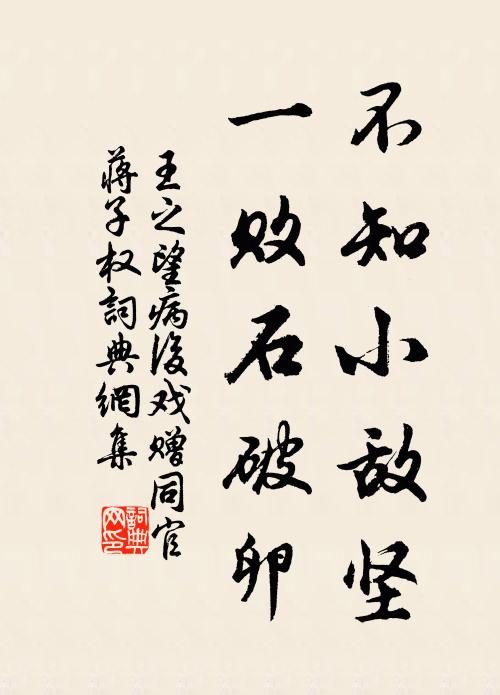 不知小敌坚
一败石破卵
王之望病後戏赠同官
蒋子权詞典網集
詞典
网印